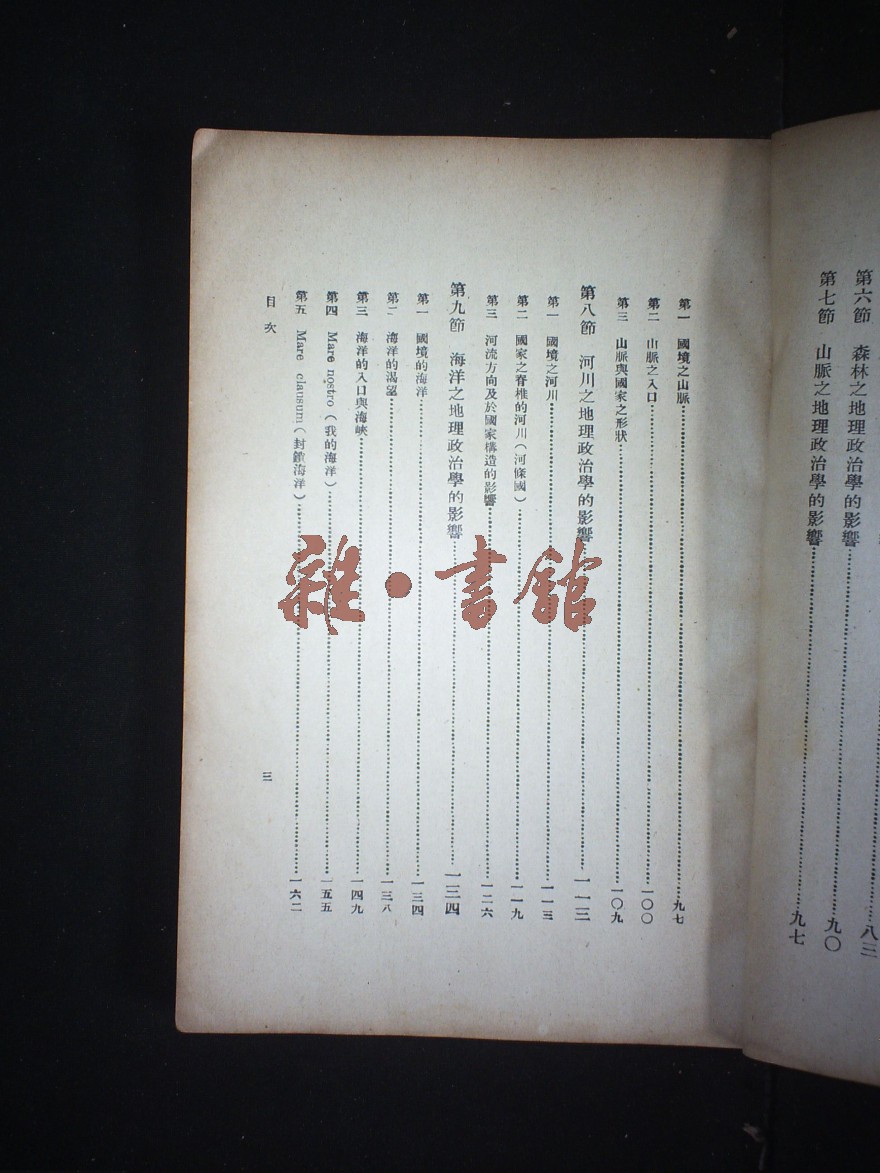 八三
第六節 森林之地理政治學的影響……九〇
第七節 山脈之地理政治學的影響……九七
第一 國境之山脈……九七
第二 山脈之入口……一〇〇
第三 山脈與國家之形狀……一〇九
第八節 河川之地理政治學的影響……一一三
第一 國境之河川……一一三
第二 國家之脊椎的河川(河條國)……一一九
第三 河流方向及於國家構造的影響……一二六
第九節 海洋之地理政治學的影響……一三四
第一 國境的海洋……一三四
第二 海洋的渴望……一三八
第三 海洋的入口與海峽……一四九
第四 Mare nostro(我的海洋)……一五五
第五 Mare clausum(封鎖海洋)……一六二
目次 三
雜•書館